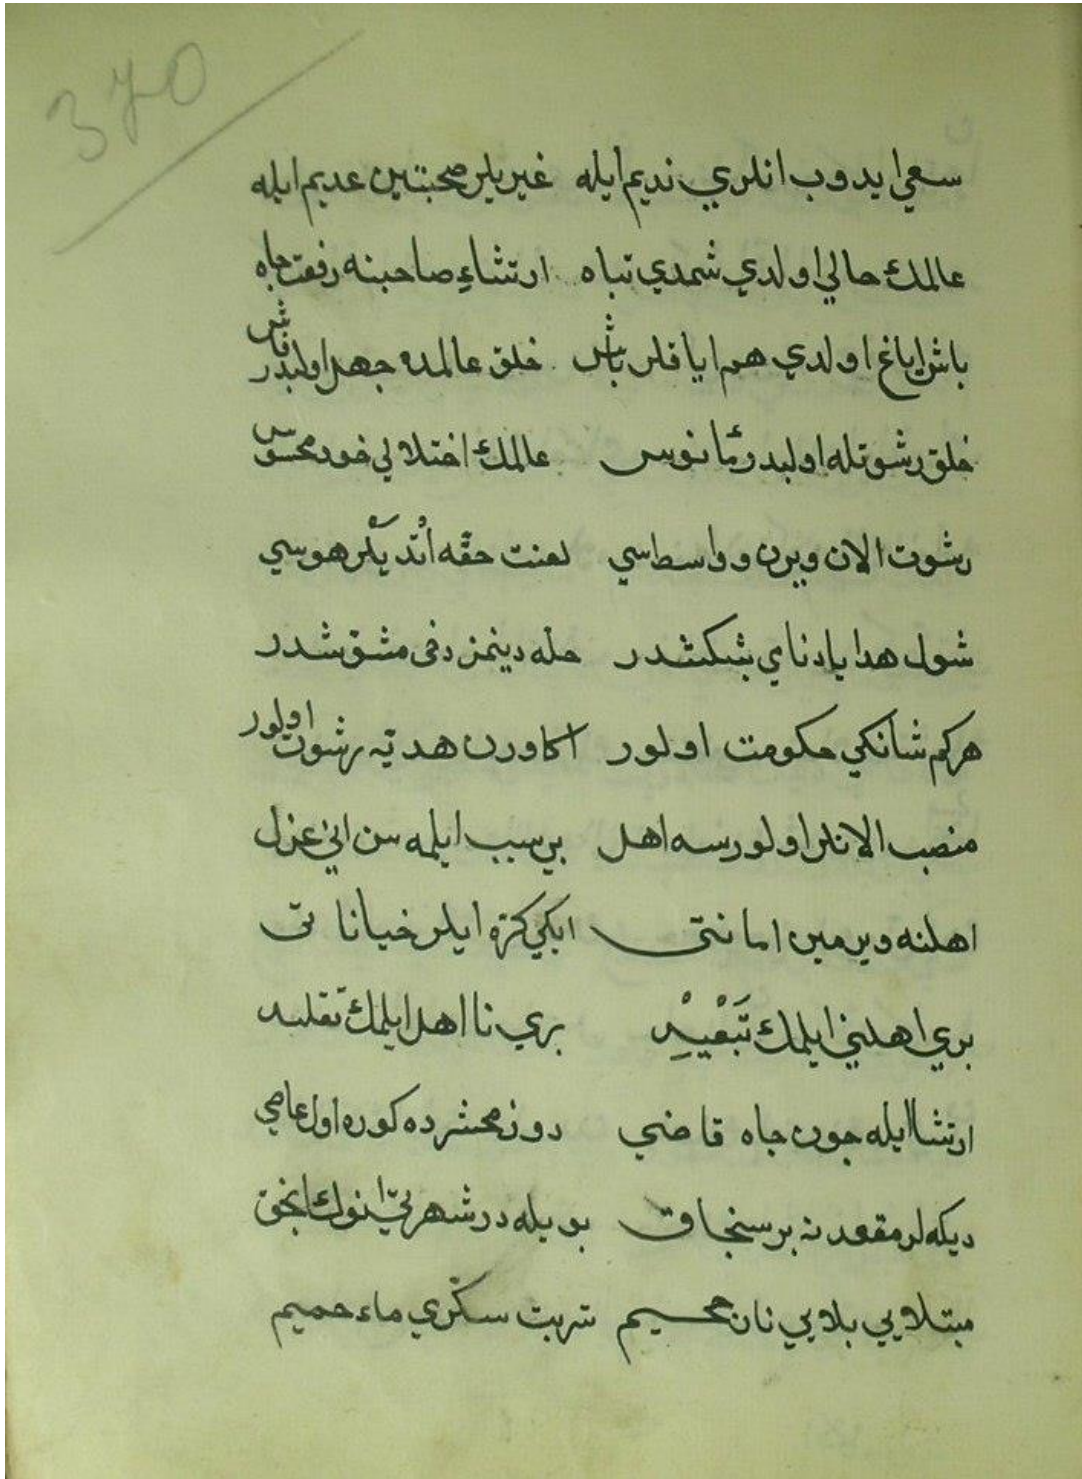 370
سعي ايدوب انلري نديم ايله غيريلر صحبتين عديم ايله
عالمك حالي اولدي شمدي تباه ارتشاءِ صاحبنه رفعت جاه
باش اياغ اولدي هم اياقلر باش خلق عالمده جهل اولبدر فاش
خلق رشوتله اولبدر مأنوس عالمك اختلالي خود محسوس
رشوت الان ويرن و واسطاسي لعنت حقّه اُنْديلر هوسي
شول هدايا دناي بشكشدر حله دينمز دخى مشقشدر
هركم شانكي حكومت اولور اكا ورن هديّه رشوت اولور
منصب الانلر اولورسه اهل بي سبب ايلمه سن اني عزل
اهلنه ويرمين امانتى ايكي كرّه ايلر خياناتى
بري اهلني ايلمك تَبْعِيدْ بري نا اهل ايلمك تقليد
ارتشا ايله جون جاه قاضي روز محشرده كوره اول عاصي
ديكه لر مقعدنه بر سنجاق بويله در شهرتي انوك انجق
مبتلايي بلايي نان جحيم شربت سكّري ماء حميم